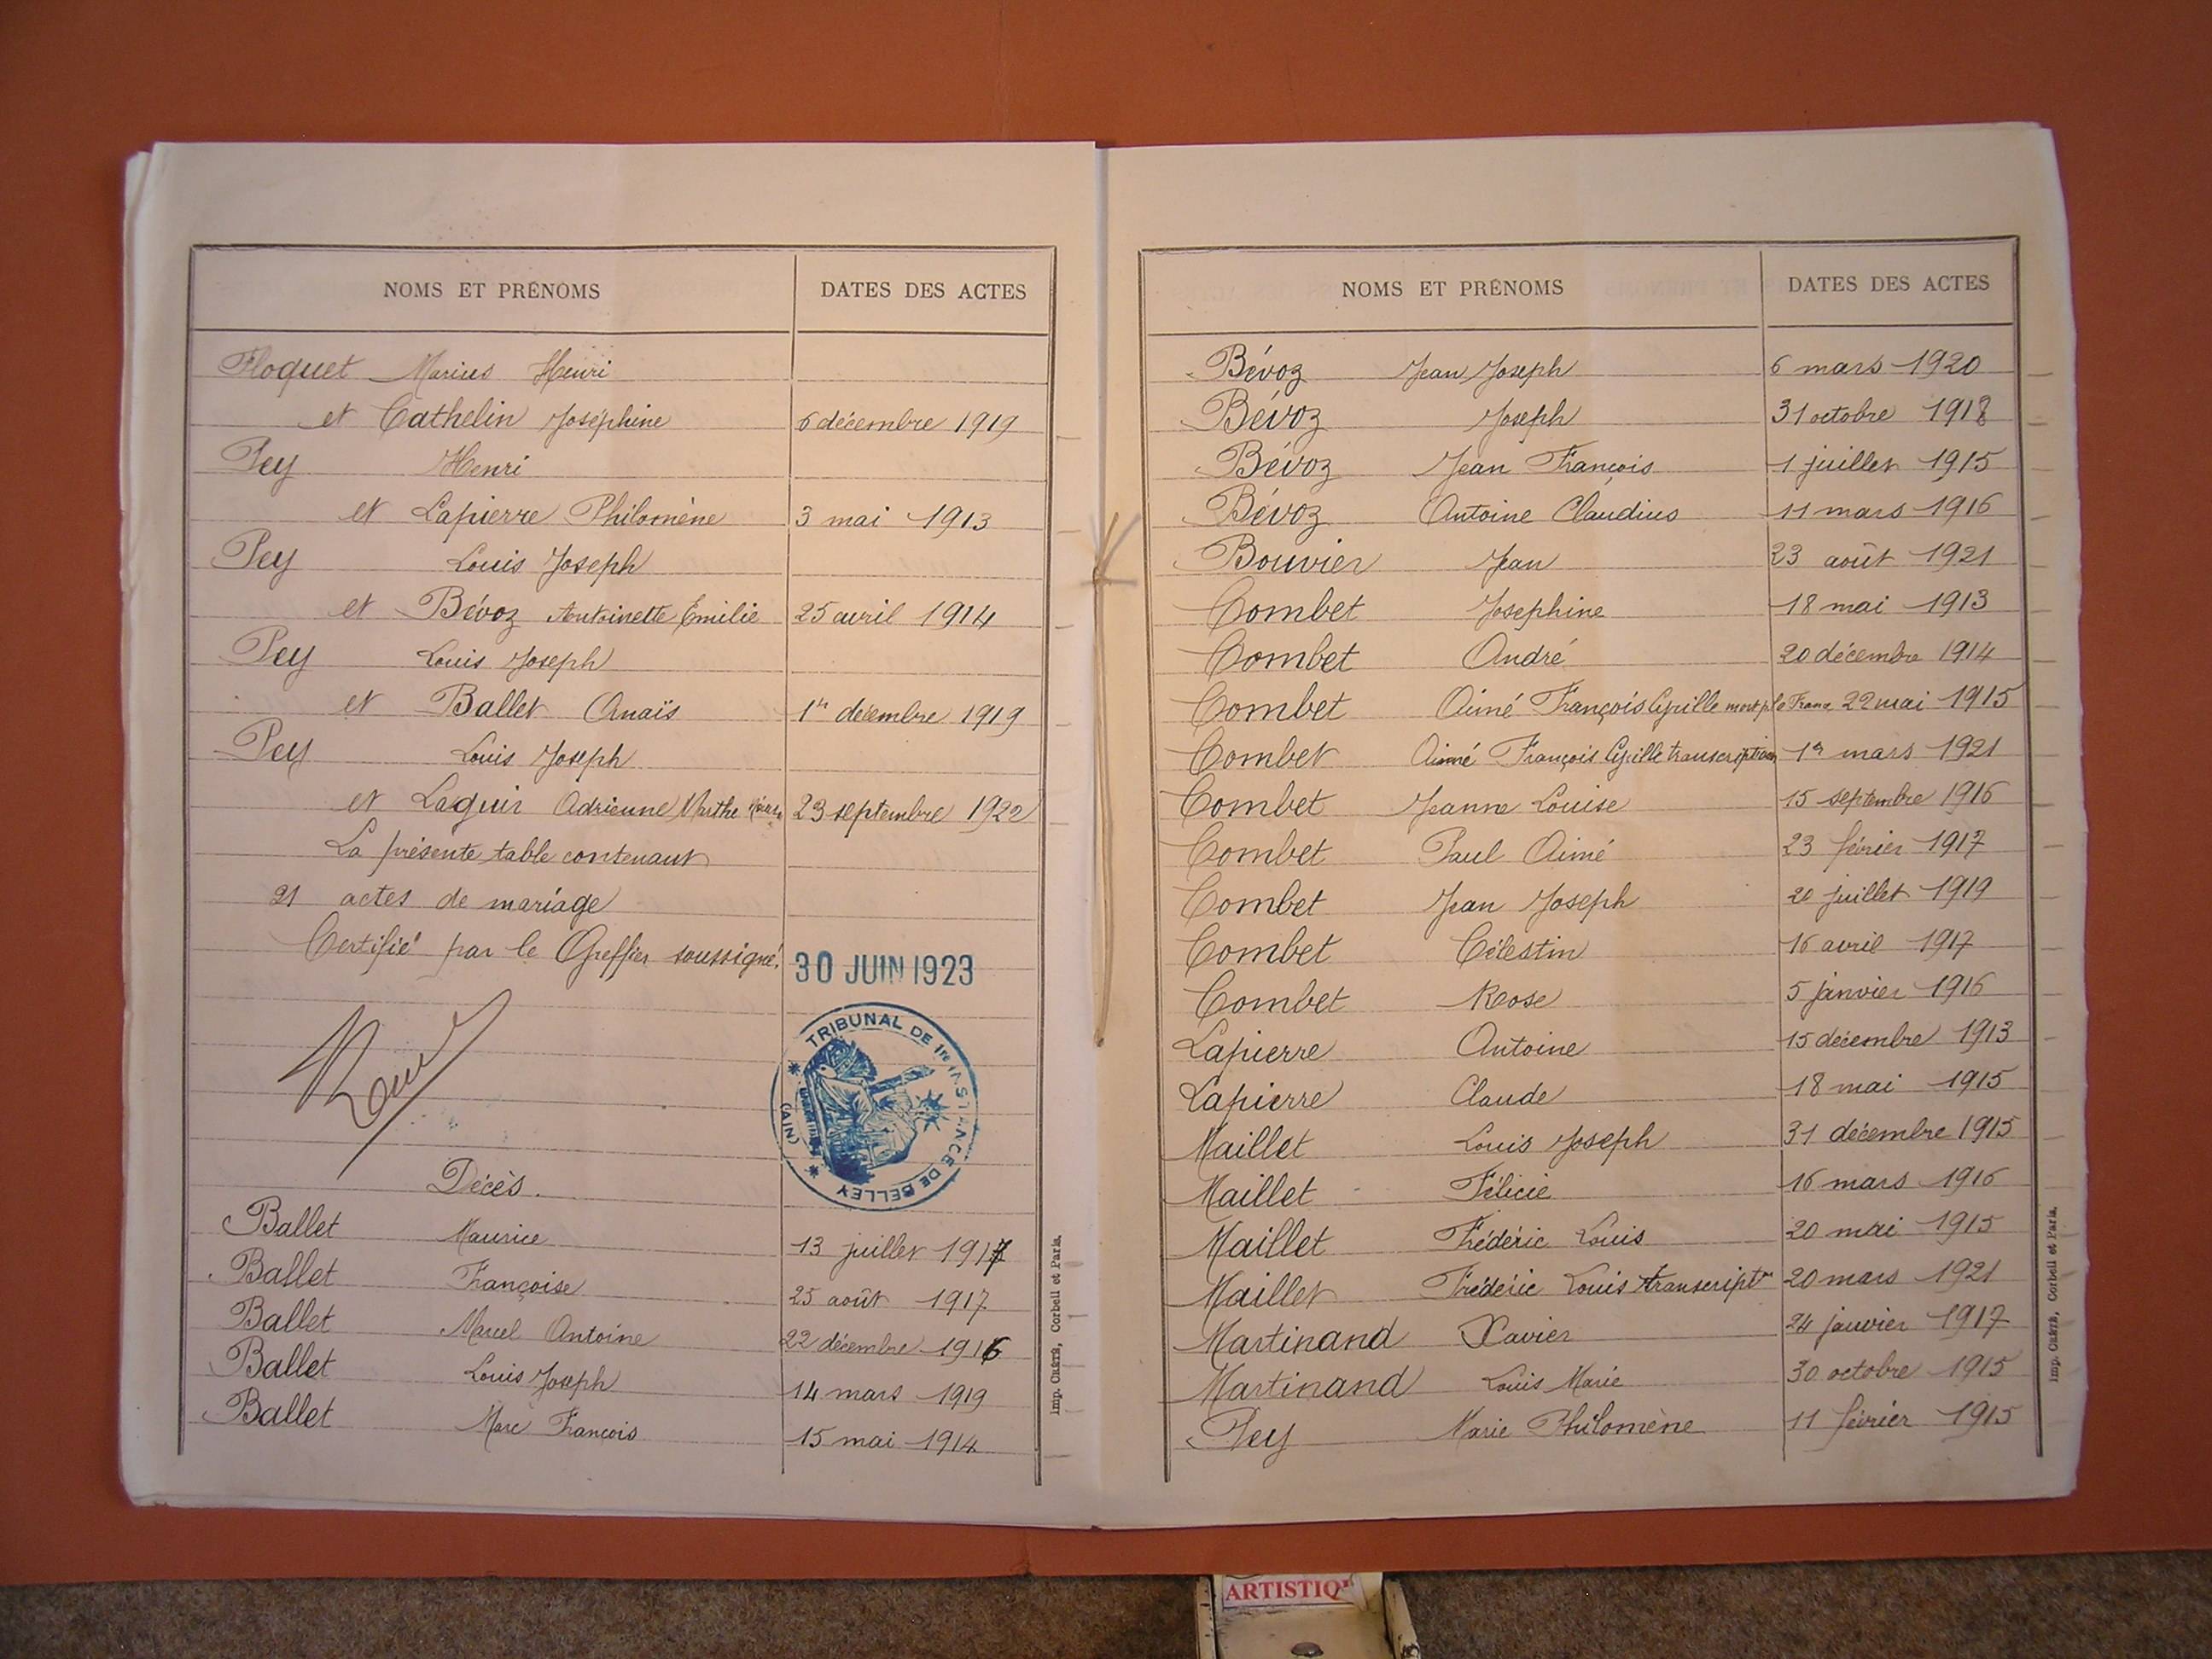 NOMS ET PRÉNOMS DATES DES ACTES
Floquet Marius Henri
et Cathelin Joséphine 6 décembre 1919
Pey Henri
et Lapierre Philomène 3 mai 1913
Pey Louis Joseph
et Bévoz Antoinette Emilie 25 avril 1914
Pey Louis Joseph
et Ballet Anaïs 1er décembre 1919
Pey Louis Joseph
et Laguir Adrienne Marthe 23 septembre 1922
La présente table contenant
21 actes de mariage
Certifié par le Greffier soussigné.
30 JUIN 1923
TRIBUNAL DE 1re INSTANCE DE BELLEY
(AIN)
Décès.
Ballet Maurice 13 juillet 1917
Ballet Françoise 25 août 1917
Ballet Marcel Antoine 22 décembre 1916
Ballet Louis Joseph 14 mars 1919
Ballet Marc François 15 mai 1914
Imp. CRÉTÉ, Corbeil et Paris.
NOMS ET PRÉNOMS DATES DES ACTES
Bévoz Jean Joseph 6 mars 1920
Bévoz Joseph 31 octobre 1918
Bévoz Jean François 1 juillet 1915
Bévoz Antoine Claudius 11 mars 1916
Bouvier Jean 23 août 1921
Combet Josephine 18 mai 1913
Combet André 20 décembre 1914
Combet Aimé François Cyrille mort p le Franc 22 mai 1915
Combet Aimé François Cyrille transcription 1er mars 1921
Combet Jeanne Louise 15 septembre 1916
Combet Paul Aimé 23 février 1917
Combet Jean Joseph 20 juillet 1919
Combet Célestin 16 avril 1917
Combet Rose 5 janvier 1916
Lapierre Antoine 15 décembre 1913
Lapierre Claude 18 mai 1915
Maillet Louis Joseph 31 décembre 1915
Maillet Félicie 16 mars 1916
Maillet Frédéric Louis 20 mai 1915
Maillet Frédéric Louis transcript on 20 mars 1921
Martinand Xavier 24 janvier 1917
Martinand Louis Marie 30 octobre 1915
Pey Marie Philomène 11 février 1915
Imp. CRÉTÉ, Corbeil et Paris.
ARTISTIQ